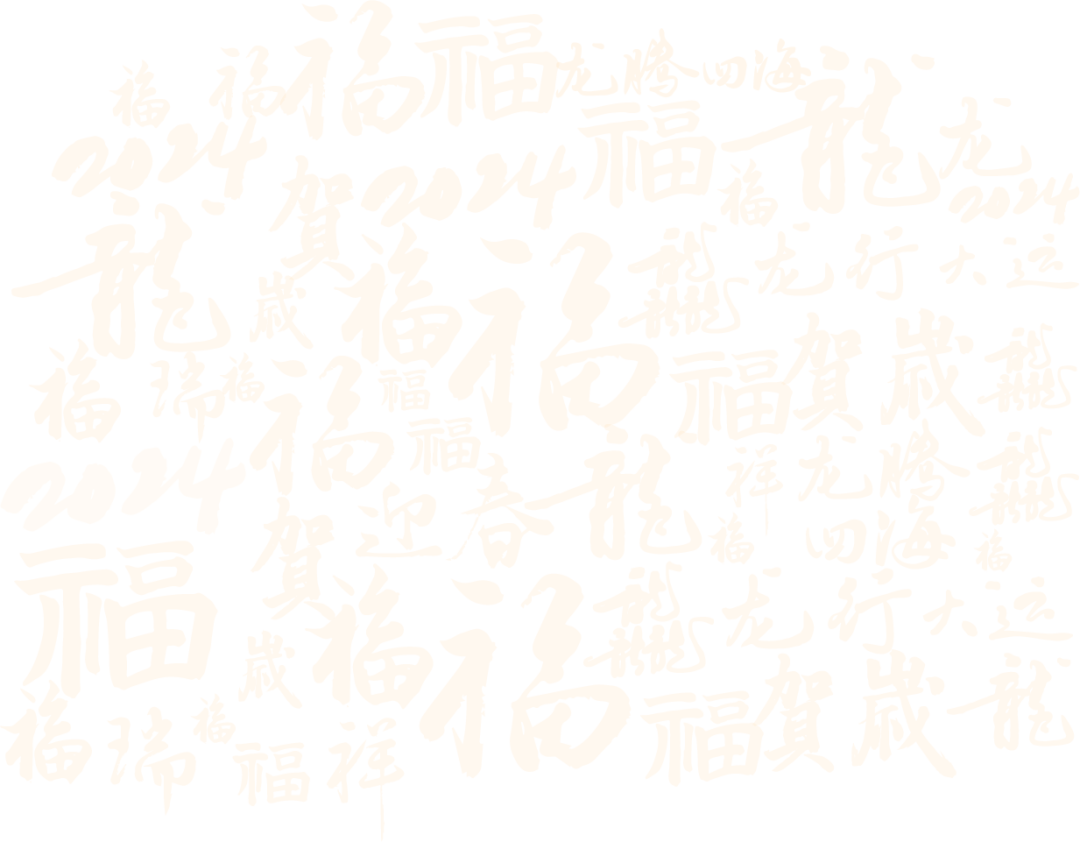 福 福 福 福 龙腾四海
2024 福 龍 龙
賀 2024 福 2024
龍 福 福 龍 龙 行 大 运
歲
福 瑞 福 福 福 福 賀 歲
2024 福 春 龍 祥 龙 腾
賀 迎 福 四 海 福
福 福 福 龙 行 大 运
歲
福 瑞 福 福 祥 福 賀 歲 龍